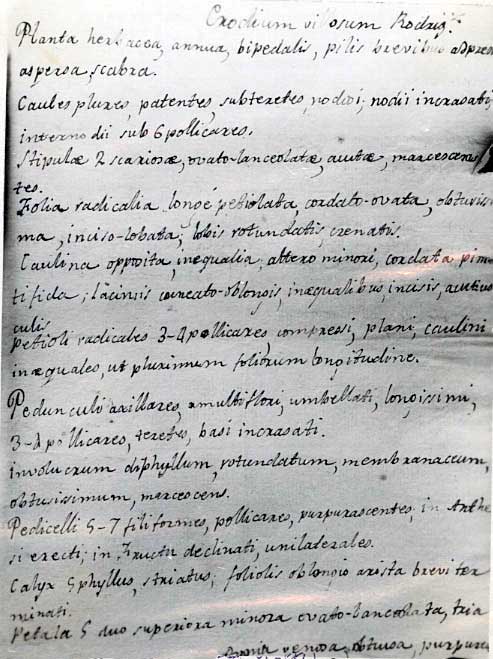 Erodium villosum Rodrig.z
Planta herbacea, annua, bipedalis, pilis brevibus adpres
aspersa, scabra.
Caules plures, patentes, subteretes, nodosi; nodii incrasati,
internodii sub 6 pollicares.
Stipulæ 2 scariosæ, ovato-lanceolatæ, acutæ, marcescen
tes.
Folia radicalia longé petiolata, cordato-ovata, obtusissi
ma, inciso-lobata; lobis rotundatis crenatis.
Caulina opposita, inequalia, altero minori, cordata pinna
tifida; laciniis cuneato-oblongis, inæqualibus, incisis, acutius
culis.
Petioli radicales 3-4 pollicares, compressi, plani; caulini
inæquales, ut plurimum foliorum longitudine.
Pedunculi axillares, multiflori, umbellati, longissimi,
3-4 pollicares, teretes, basi incrasati.
Involucrum diphyllum, rotundatum, membranaceum,
obtusissimum, marcescens.
Pedicelli 5-7 filiformes, pollicares, purpurascentes, in Anthe
si erecti; in Fructu declinati, unilaterales.
Calyx 5 phyllus, striatus; foliolis oblongis arista brevi ter
minati.
Petala 5 duo superiora minora ovato-lanceolata, tria
venosa, obtusa, purpurea